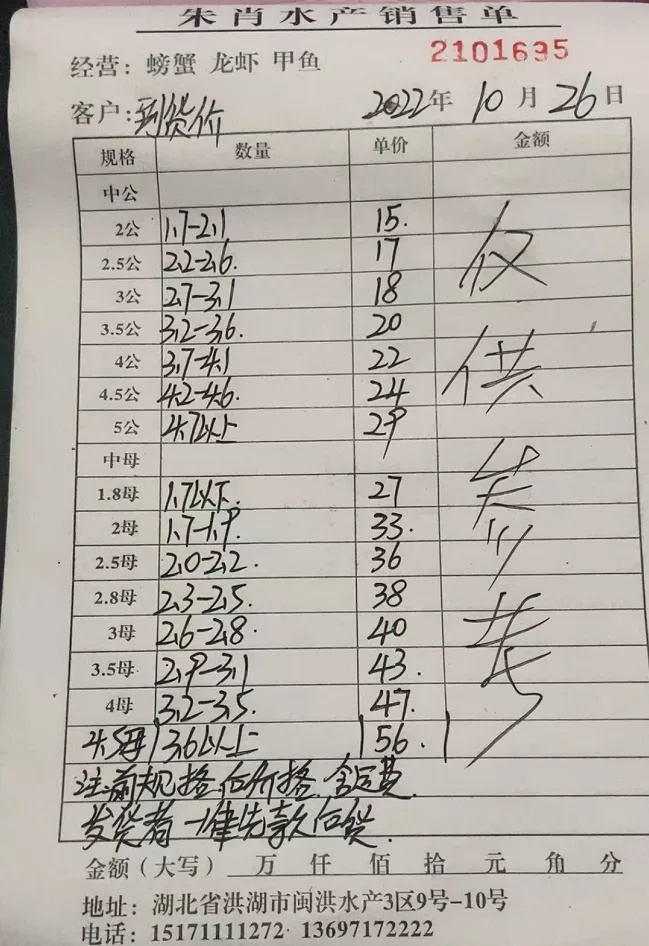 朱肖水产销售单
经营：螃蟹 龙虾 甲鱼 2101695
客户：到货价 2022年10月26日
规格 数量 单价 金额
中公
2公 1.7-2.1 15.
2.5公 2.2-2.6. 17
3公 2.7-3.1 18
3.5公 3.2-3.6. 20
4公 3.7-4.1 22
4.5公 4.2-4.6. 24
5公 4.7以上 29
中母
1.8母 1.7以下. 27
2母 1.7-1.9. 33.
2.5母 2.0-2.2. 36
2.8母 2.3-2.5. 38
3母 2.6-2.8. 40
3.5母 2.9-3.1 43.
4母 3.2-3.5. 47.
4.5母 3.6以上 56.
仅供参考
注前规格后价格 含运费
发货者一律先款后货.
金额（大写） 万 仟 佰 拾 元 角 分
地址：湖北省洪湖市闽洪水产3区9号-10号
电话：15171111272 13697172222